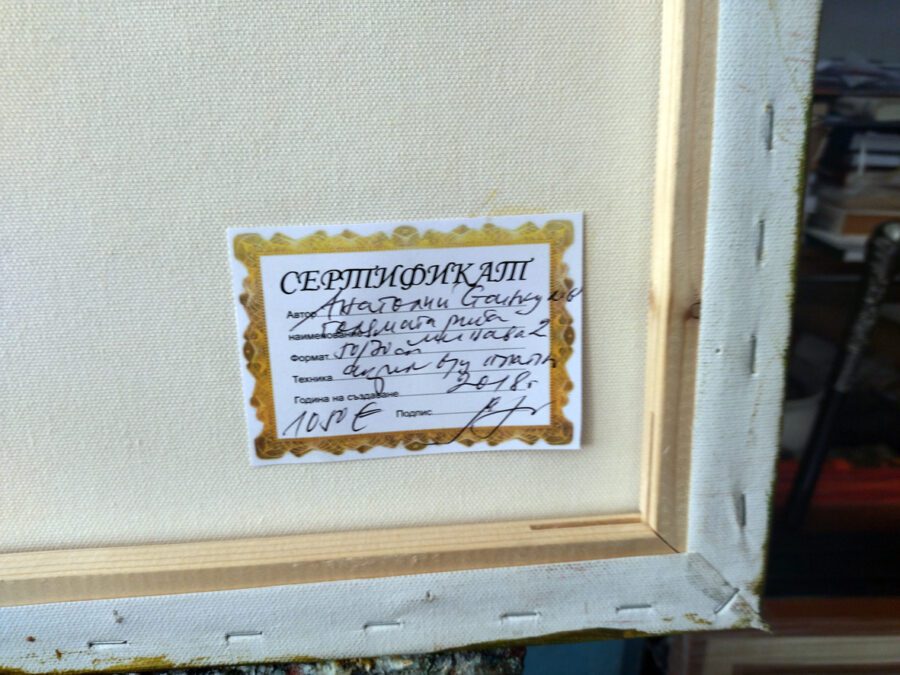 СЕРТИФИКАТ
Автор Анатолий Станкулов
наименование Голямата риба
Формат 50/70 см минава 2
Техника акрил в/у платно
Година на създаване 2018 г
1050 € Подпис